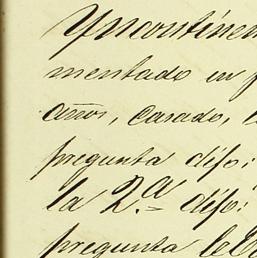 Yncontinen
mentado en
años, casado,
pregunta dijo:
la 2.ª dijo:
pregunta